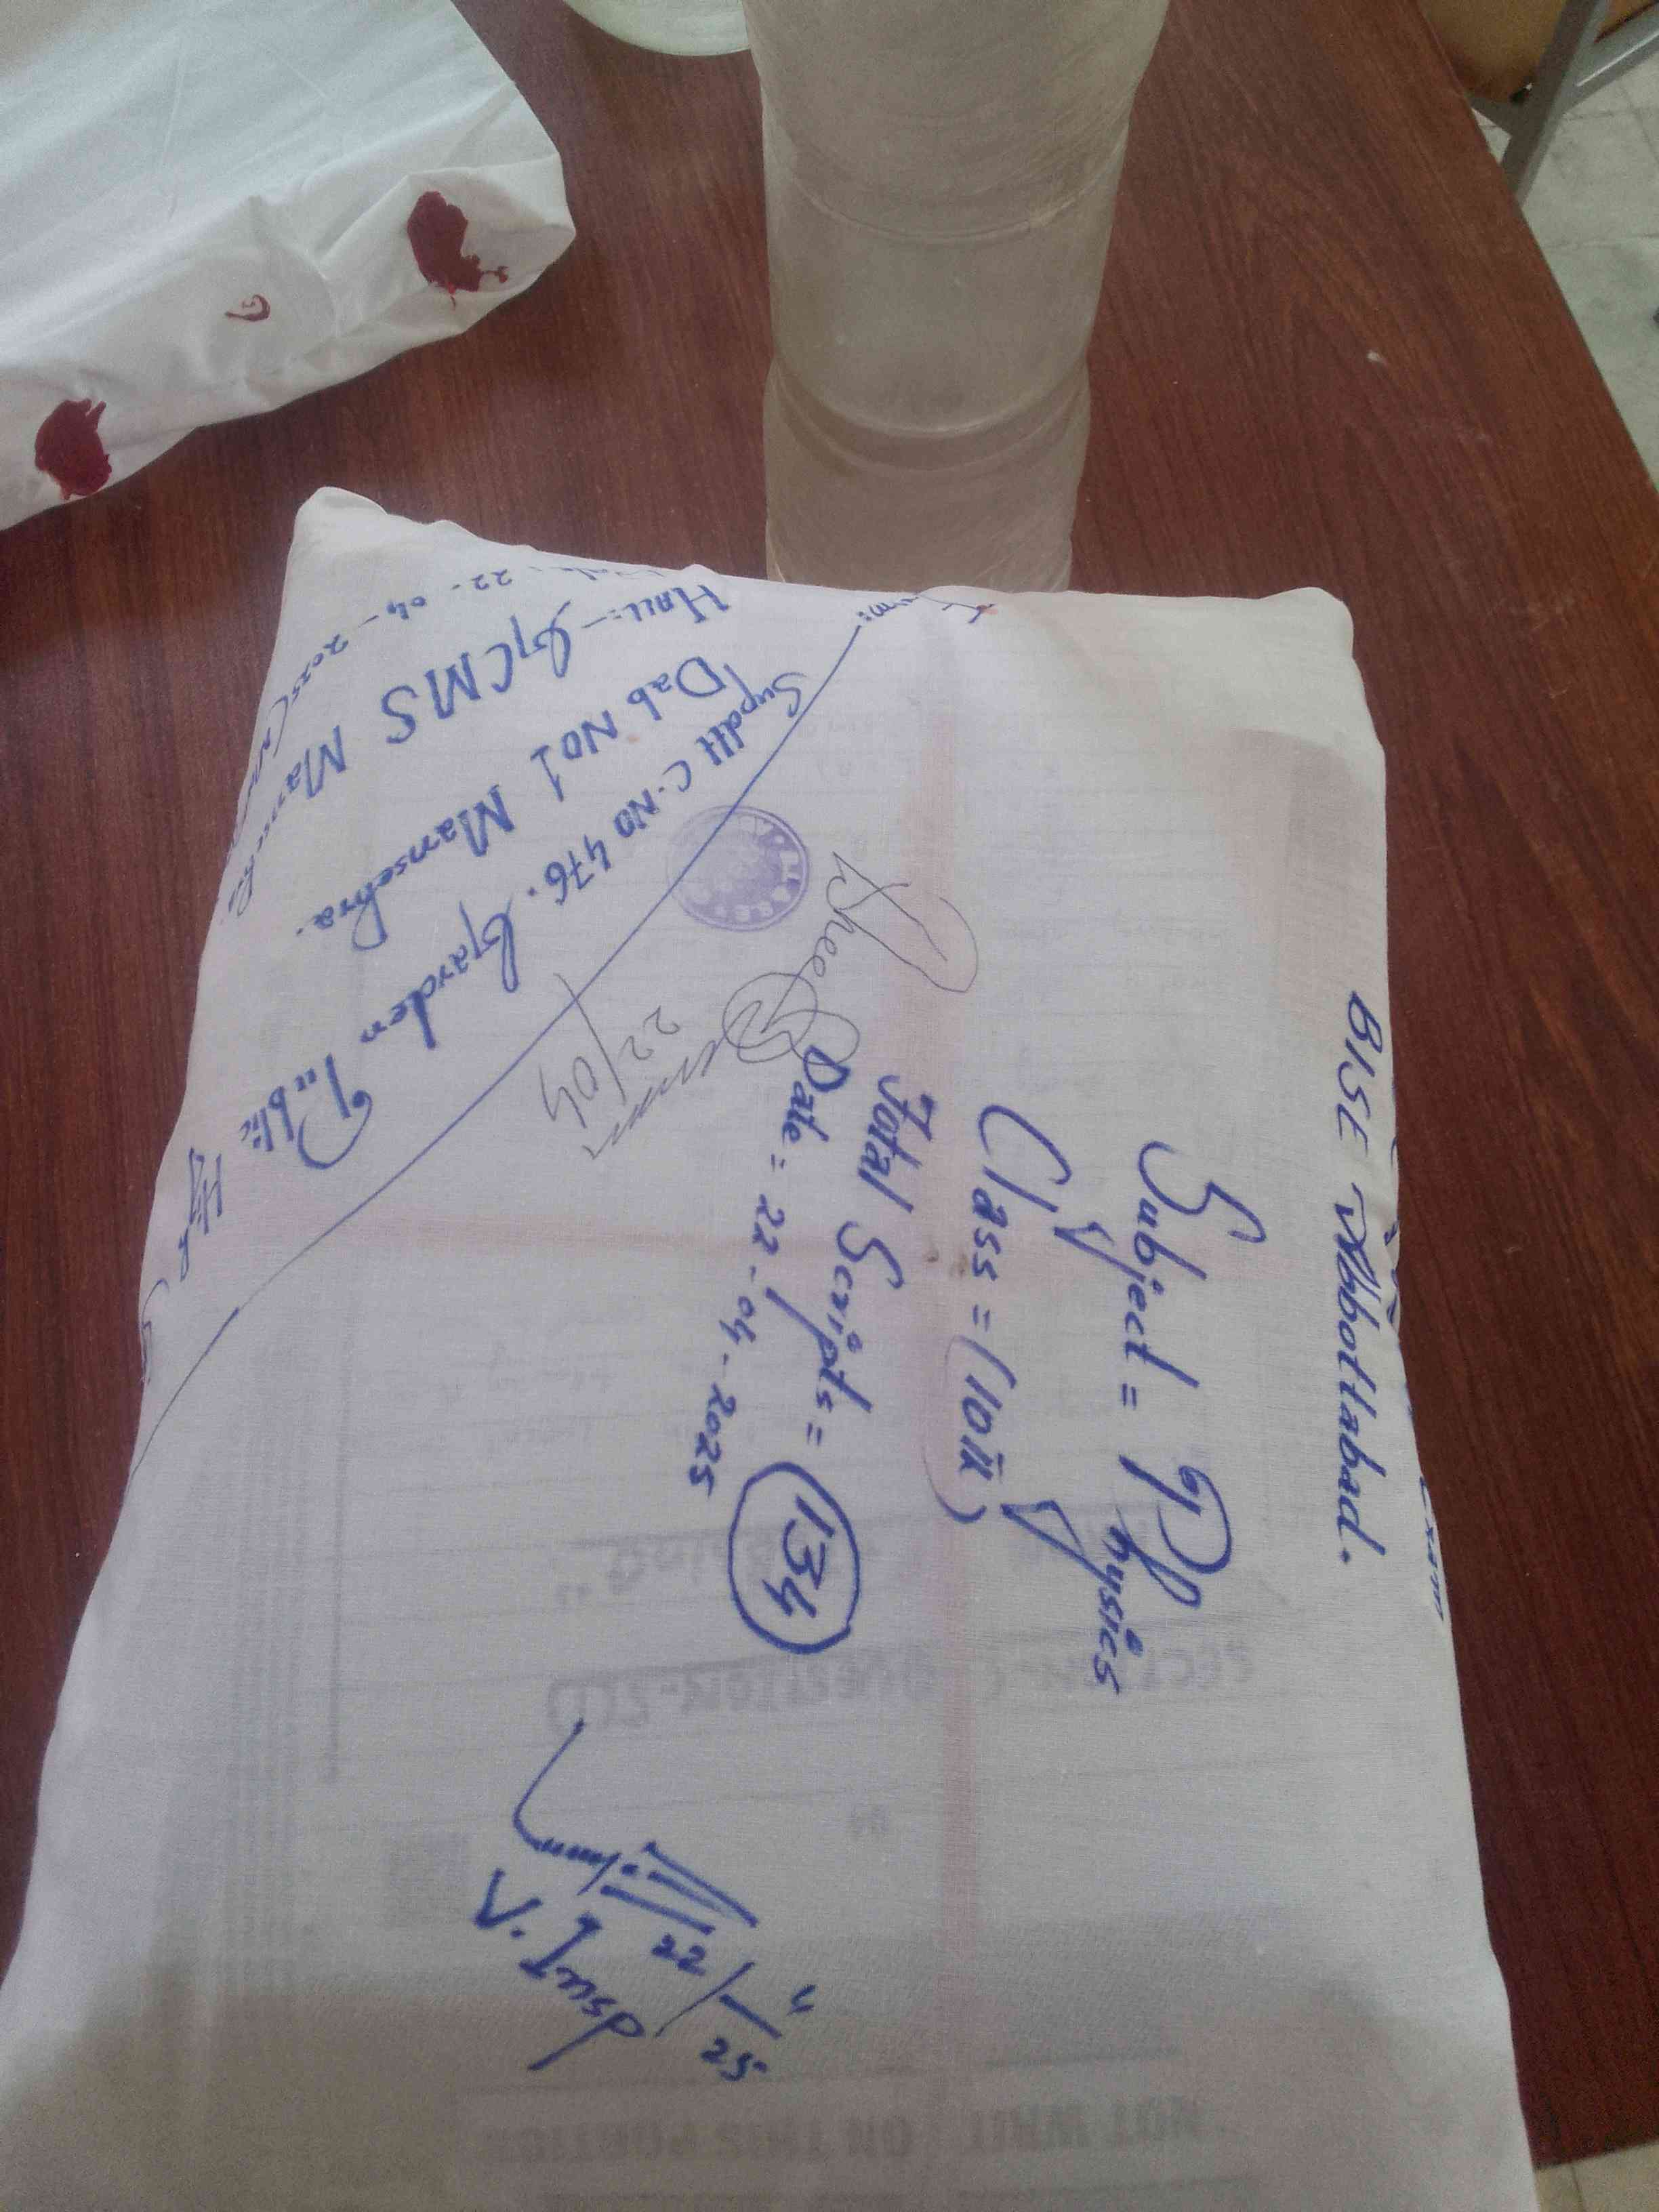 BISE Abbottabad.
Subject = Physics
Class = (10th)
Total Scripts = 134
Date = 22-04-2025
22/04
From:
Supdtt C.No 476. Garden Public
Dab No1 Mansehra.
Hall:- GCMS Mansehra.
22-04-2025
V. Insp
22/4/25
SECTION-C (QUESTION-
NOT WRITE ON THIS PORTION